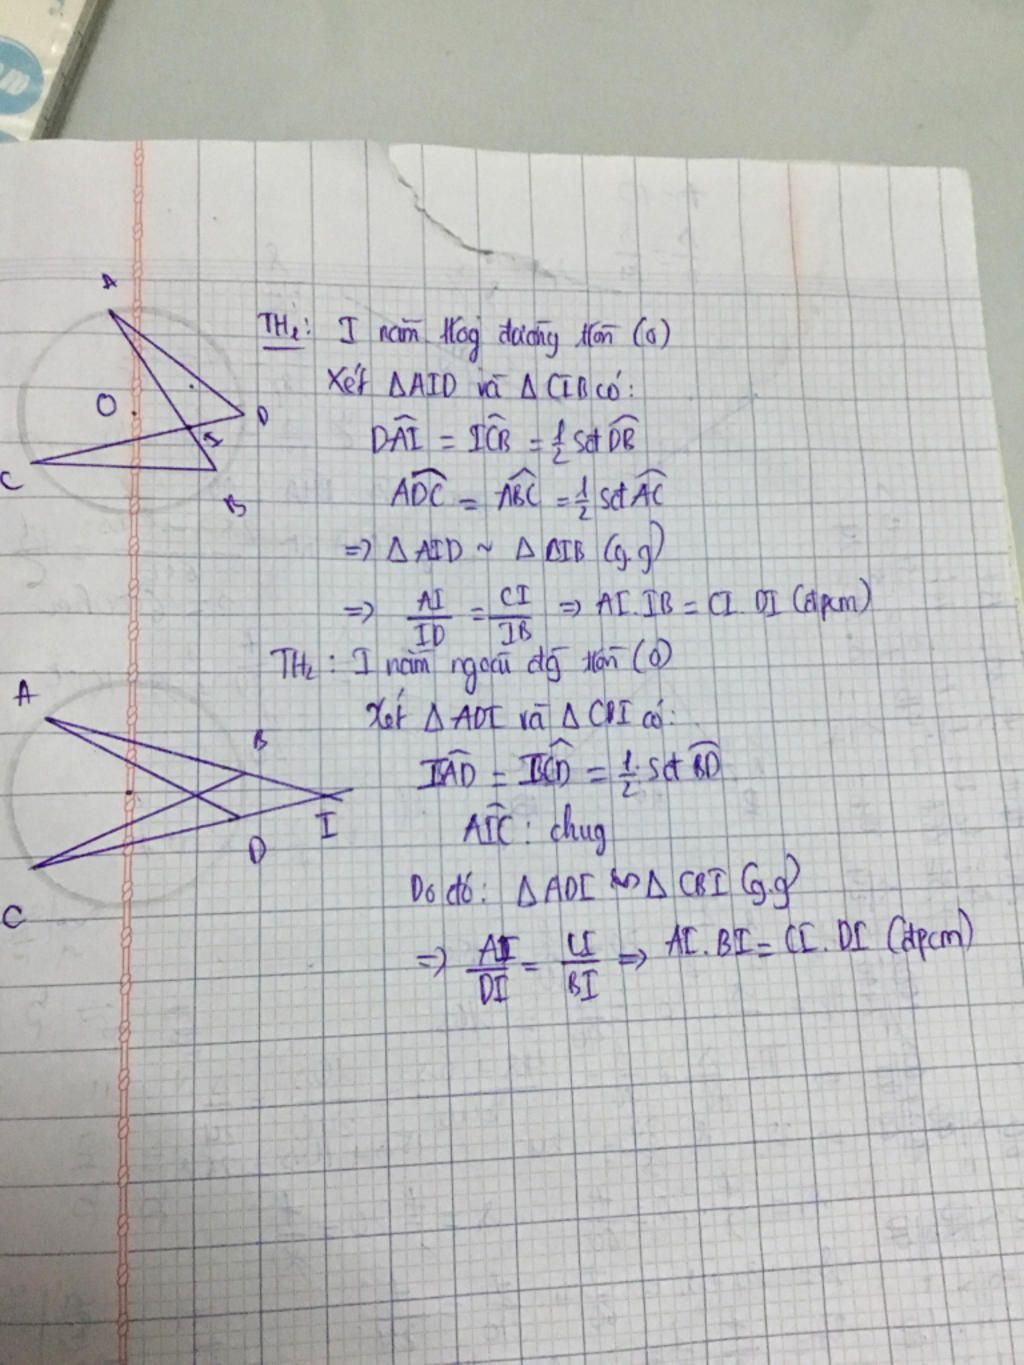 A
O
D
I
C
B
TH1: I nằm trog đường tròn (O)
Xét ΔAID và ΔCIB có:
DAI = ICB = 1/2 sđ DB
ADC = ABC = 1/2 sđ AC
=> ΔAID ~ ΔCIB (g.g)
=> AI/ID = CI/IB => AI.IB = CI.DI (đpcm)
TH2: I nằm ngoài đg tròn (O)
Xét ΔADI và ΔCBI có:
IAD = BCD = 1/2 sđ BD
AIC: chug
Do đó: ΔADI ∽ ΔCBI (g.g)
=> AI/DI = CI/BI => AI.BI = CI.DI (đpcm)
A
B
I
D
C